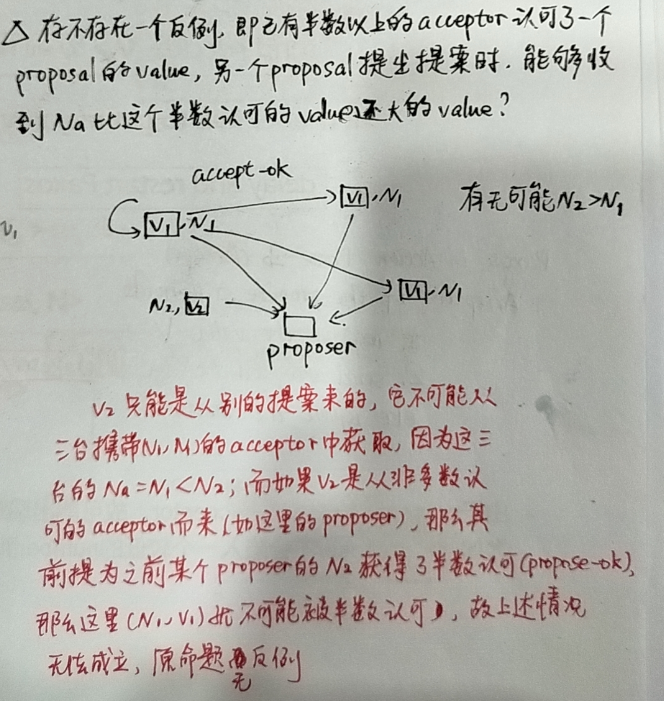 △ 存不存在一个反例，即已有半数以上的acceptor认可了一个
proposal的value，另一个proposal提出提案时，能够收
到Na比这个半数认可的value还大的value？
accept-ok
V1, N1
V1, N1
有无可能N2>N1
V1
V1, N1
N2, V2
proposer
V2只能是从别的提案来的，它不可能从
三台携带(N1, V1)的acceptor中获取，因为这三
台的Na=N1<N2；而如果V2是从非多数认
可的acceptor而来(如这里的proposer)，那么其
前提为之前某个proposer的N2获得了半数认可(propose-ok)，
那么这里(N1, V1)就不可能被半数认可，故上述情况
无法成立，原命题无反例